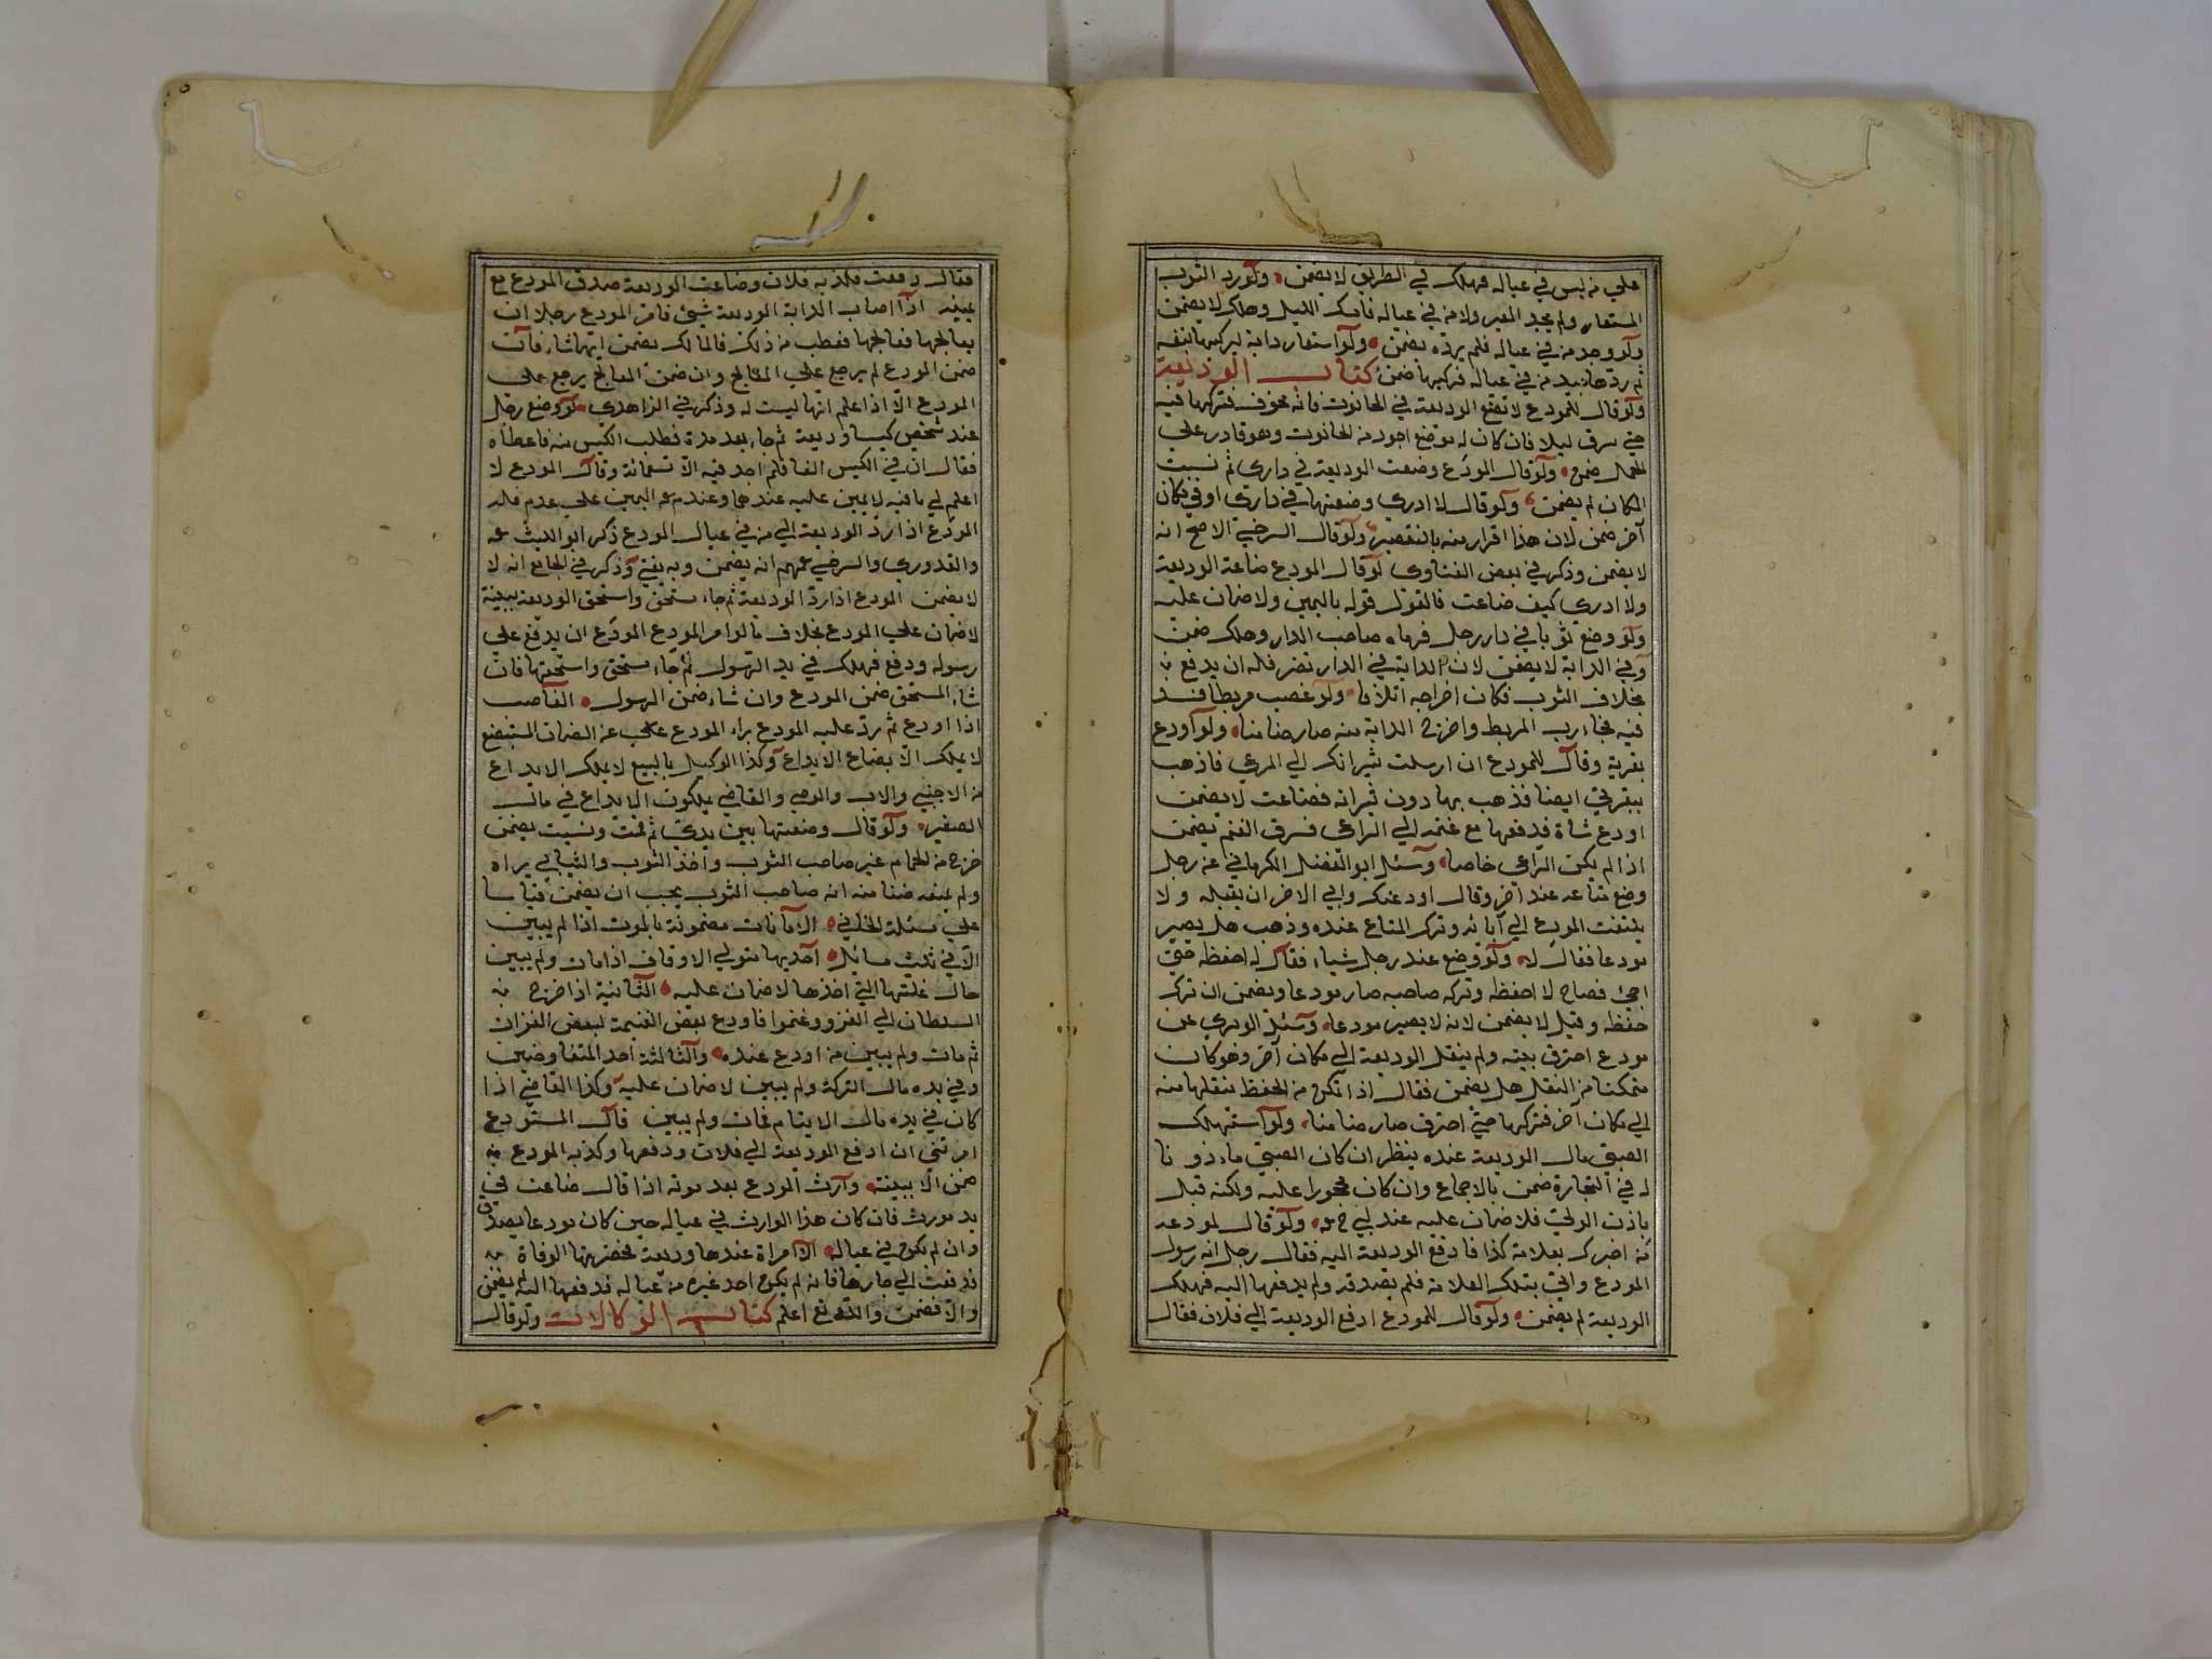 على من ليس في عياله فهلك في الطريق لا يضمن ولو رد الثوب
المستعار ولم يجد المعير ولا من في عياله فامسك الليل وهلك لا يضمن
ولو وجد من في عياله فلم يرده يضمن ولو استعار دابة ليركبها بنفسه
ثم ردها بيد من في عياله فركبها ضمن كتاب الوديعة
ولو قال للمودع لا تضع الوديعة في الحانوت فانه مخوف فتركها فيه
حتى سرق ليلا فان كان له موضع احرز من الحانوت وهو قادر على
الحمل ضمن ولو قال المودع وضعت الوديعة في داري ثم نسيت
المكان لم يضمن ولو قال لا ادري وضعتها في داري او في مكان
آخر ضمن لان هذا اقرار منه بالتقصير ولو قال السرخسي الاصح انه
لا يضمن وذكر في بعض الفتاوى لو قال المودع ضاعة الوديعة
ولا ادري كيف ضاعت فالقول قوله باليمين ولا ضمان عليه
ولو وضع ثوبا في دار رجل فرماه صاحب الدار وهلك ضمن
وفي الدابة لا يضمن لان الدابة في الدار تضر فله ان يدفع
بخلاف الثوب فكان اخراجه اتلافا ولو غصب مربطا فشد
فيه فجاء رب المربط واخرج الدابة منه صار ضامنا ولو اودع
بقرية وقال للمودع ان ارسلت ثيرانك الى المرعى فاذهب
ببقرتي ايضا فذهب بها دون ثيرانه فضاعت لا يضمن
اودع شاة فدفعها مع غنمه الى الراعي فسرق الغنم يضمن
اذا لم يكن الراعي خاصا وسئل ابو الفضل الكرماني عن رجل
وضع متاعه عند آخر وقال اودعتك وابى الاخر ان يقبله ولا
يلتفت المودع الى آبائه وترك المتاع عنده وذهب هل يصير
مودعا فقال لا ولو وضع عند رجل شياء فقال له احفظه حتى
اجئ فصاح لا احفظه وتركه صاحبه صار مودعا ويضمن ان ترك
حفظه وقيل لا يضمن لانه لا يصير مودعا وسئل الوبري عن
مودع احترق بيته ولم ينقل الوديعة الى مكان آخر وهو كان
متمكنا من النقل هل يضمن فقال اذا تمكن من الحفظ بنقلها منه
الى مكان آخر فتركها حتى احترق صار ضامنا ولو استهلك
الصبي مال الوديعة عنده ينظر ان كان الصبي ماذونا
له في التجارة ضمن بالاجماع وان كان محجورا عليه ولكنه قبل
باذن الولي فلا ضمان عليه عند ولو قال لمودعه
من اخبرك بعلامة كذا فادفع الوديعة اليه فقال رجل انه رسول
المودع واتى بتلك العلامة فلم يصدقه ولم يدفعها اليه فهلك
الوديعة لم يضمن ولو قال للمودع ادفع الوديعة الى فلان فقال
فقال دفعت فكذبه فلان وضاعت الوديعة صدق المودع مع
يمينه اذا اصاب الدابة الوديعة شئ فامر المودع رجلا ان
يعالجها فعالجها فعطب من ذلك فالمالك يضمن ايهما شاء فان
ضمن المودع لم يرجع على المعالج وان ضمن المعالج يرجع على
المودع الا اذا علم انها ليست له وذكر في الزاهدي لو وضع رجل
عند شخص كيسا وديعة ثم جاء بعد مدة فطلب الكيس منه فاعطاه
فقال ان في الكيس الفا فلم اجد فيه الا تسعمائة وقال المودع لا
اعلم لي ما فيه لا يمين عليه عندهما وعند اليمين على عدم
المودع اذا رد الوديعة الى من في عيال المودع ذكر ابو الليث
والقدوري والسرخسي انه يضمن وبه يفتى وذكر في الجامع انه لا
لا يضمن المودع اذا رد الوديعة ثم جاء مستحق واستحق الوديعة ببينة
لا ضمان على المودع بخلاف ما لو امر المودع المودع ان يدفع على
رسوله ودفع فهلك في يد الرسول ثم جاء مستحق واستحقها فان
شاء المستحق ضمن المودع وان شاء ضمن الرسول الغاصب
اذا اودع ثم رد عليه المودع براء المودع عن الضمان المستبضع
لا يملك الا بضاع الايداع وكذا الوكيل بالبيع لا يملك الايداع
من الاجنبي والاب والوصي والقاضي يملكون الايداع في مال
الصغير ولو قال وضعتها بين يدي ثم قمت ونسيت يضمن
خرج من الحمام غير صاحب الثوب واخذ الثوب والثيابي يراه
ولم يمنعه ظنا منه انه صاحب الثوب يجب ان يضمن قياسا
على مسئلة الخاني الامانات مضمونة بالموت اذا لم يبين
الا في ثلث مسائل احديها متولي الاوقاف اذا مات ولم يبين
حال غلتها التي اخذها لا ضمان عليه الثانية اذا اخرج
السلطان الى الغزو وغنموا فاودع بعض الغنيمة لبعض الغزات
ثم مات ولم يبين من اودع عنده والثالثة احد المتفاوضين
وفي يده مال الشركة ولم يبين لا ضمان عليه وكذا القاضي اذا
كان في يده مال الايتام فمات ولم يبين قال المستودع
امرتني ان ادفع الوديعة الى فلان ودفعها وكذبه المودع
ضمن الا ببينة وارث المودع بعد موته اذا قال ضاعت في
يد مورث فان كان هذا الوارث في عياله حين كان مودعا يصدق
وان لم يكن في عياله لا امراة عندها وديعة فحضرتها الوفاة
فدفعت الى جارها فانه لم يكن احد غيره من عياله فدفعها اليه لم يضمن
والا فضمن والله تع اعلم كتاب الوكالات ولو قال